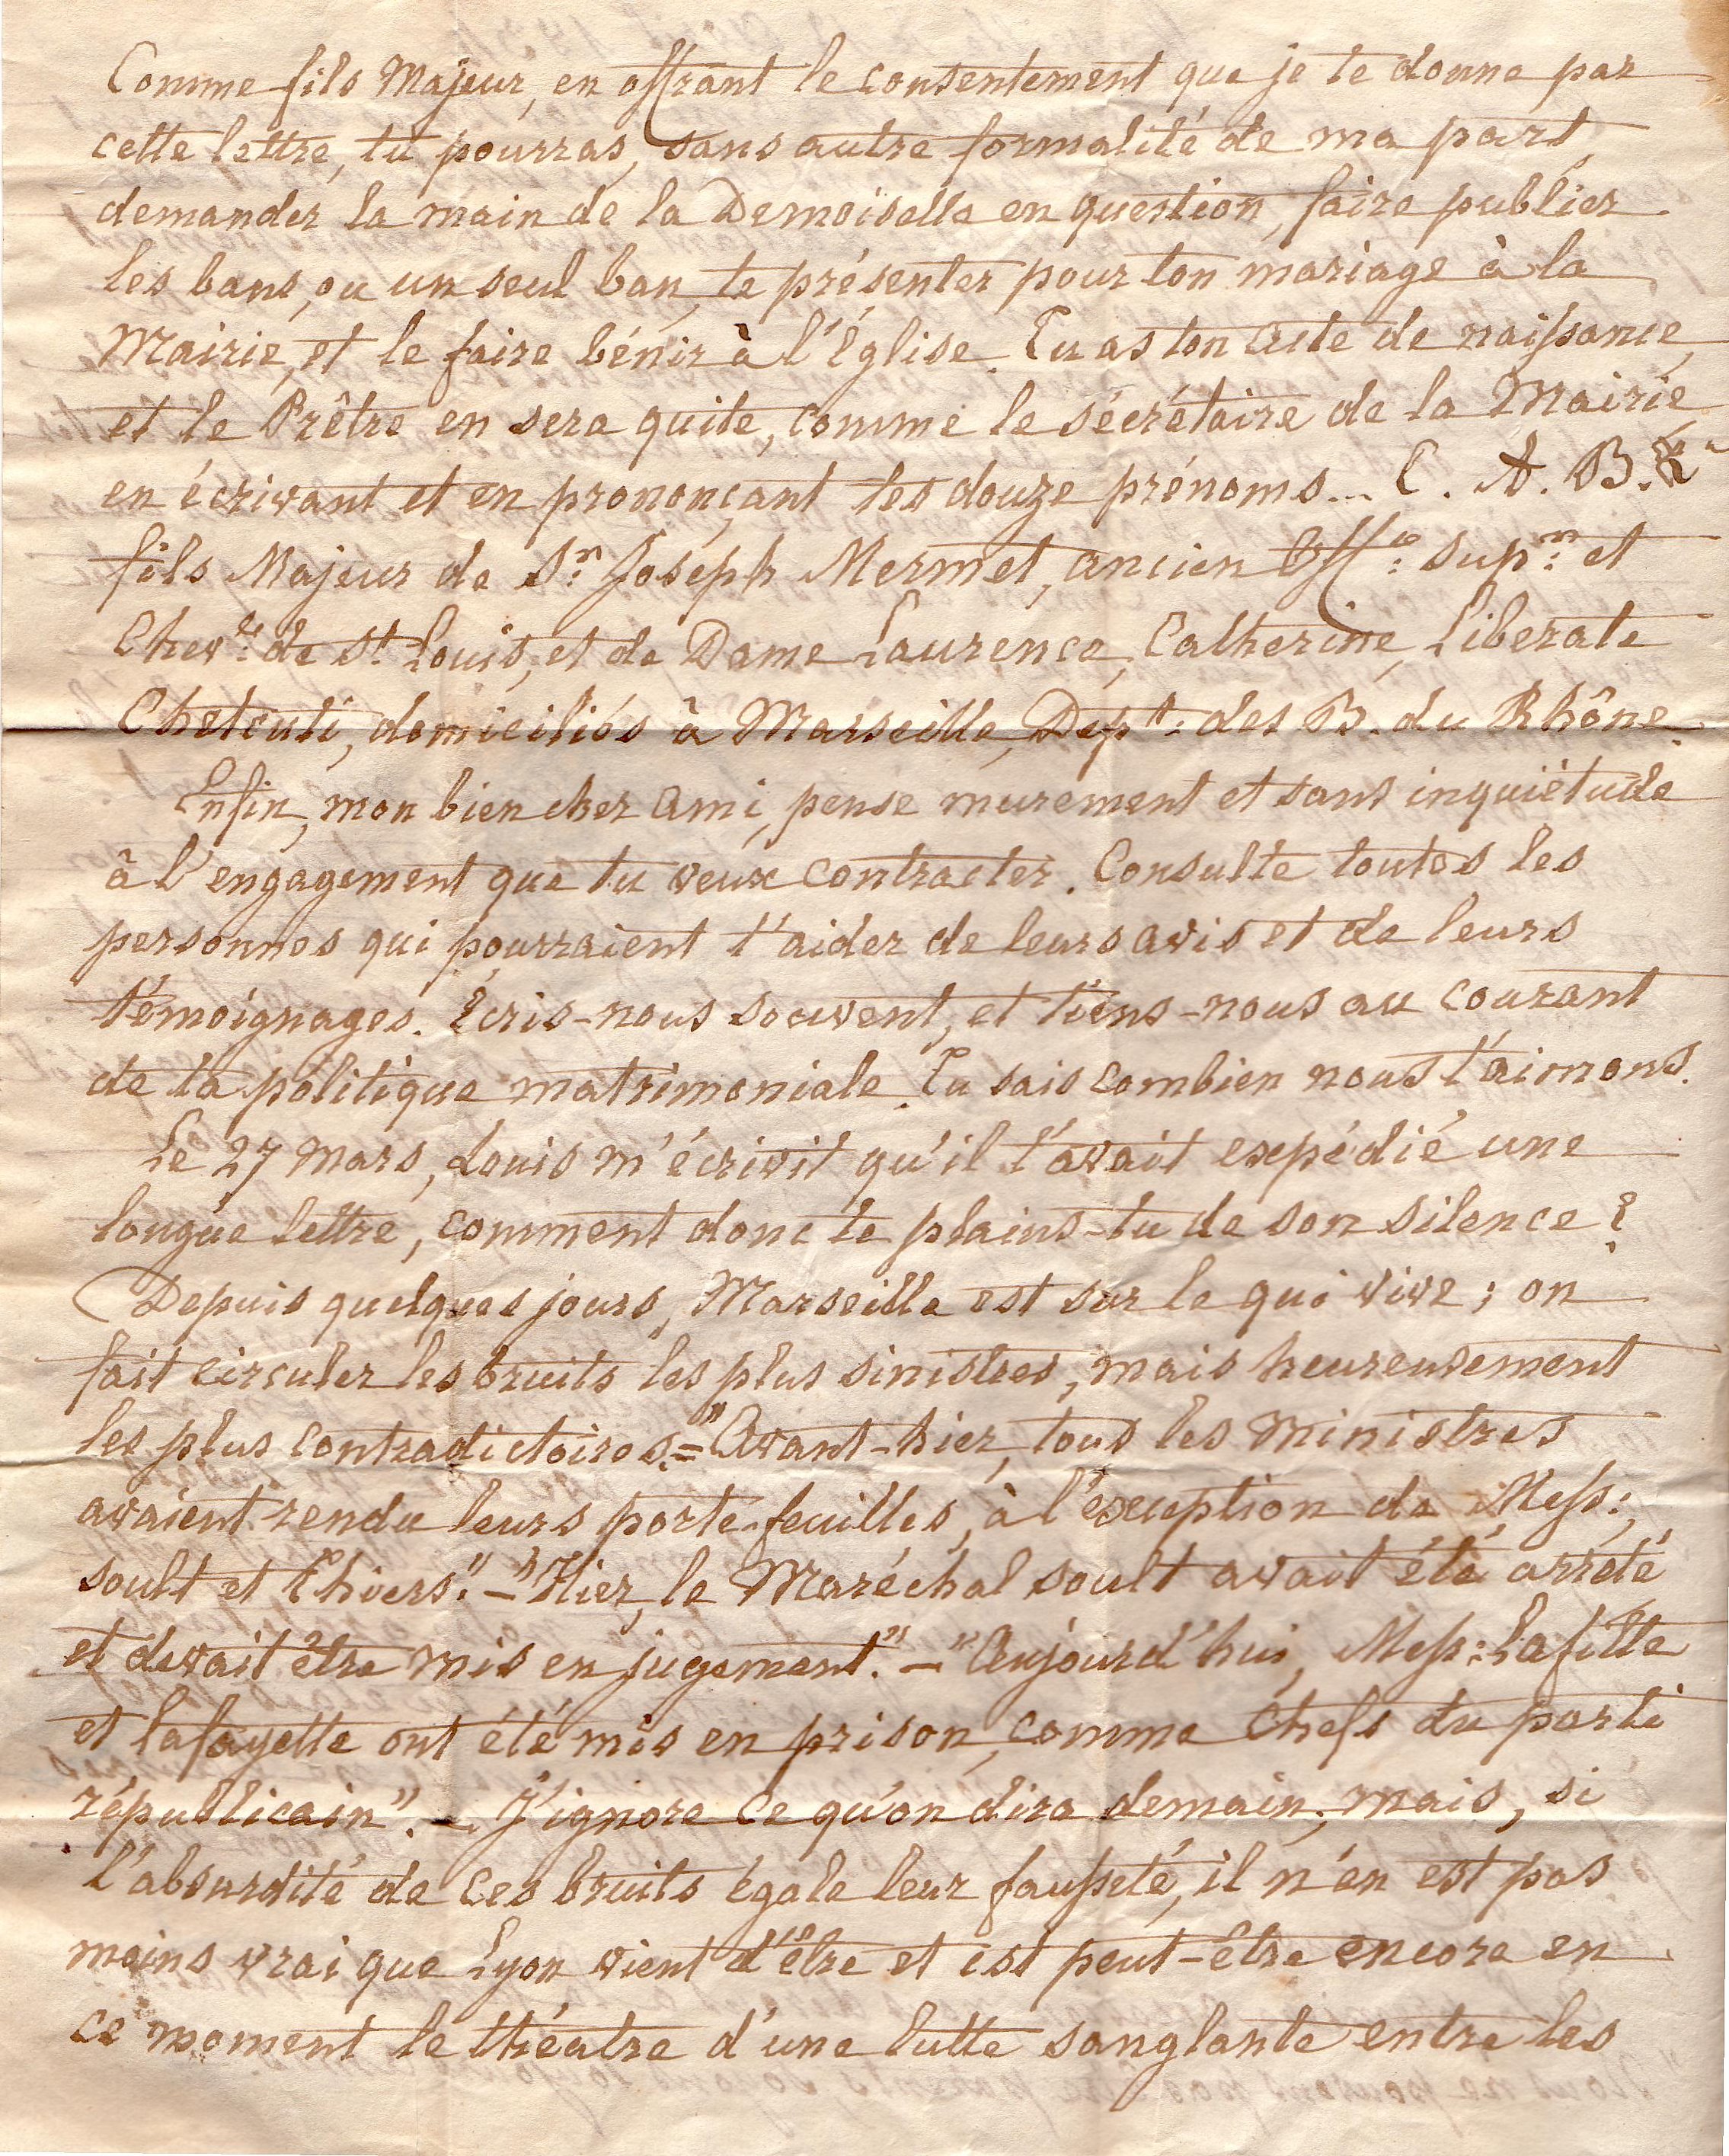 Comme fils Majeur, en offrant le consentement que je te donne par
cette lettre, tu pourras, sans autre formalité de ma part,
demander la main de la Demoiselle en question, faire publier
les bans, ou un seul ban, te présenter pour ton mariage à la
Mairie, et le faire bénir à l'Église. Tu as ton acte de naissance,
et le Prêtre en sera quite, comme le sécrétaire de la Mairie
en écrivant et en prononçant tes douze prénoms... C. A. B.
fils Majeur de Sr: Joseph Mermet, ancien Offer: supr: et
Chevr: de St. Louis, et de Dame Laurence, Catherine, Liberate
Chelouti, domiciliés à Marseille, Dépt: des B. du Rhône.
Enfin, mon bien cher ami, pense murement et sans inquiétude
à l'engagement que tu veux contracter. Consulte toutes les
personnes qui pourraient t'aider de leurs avis et de leurs
témoignages. Écris-nous souvent, et tiens-nous au courant
de ta politique matrimoniale. Tu sais combien nous t'aimons.
Le 27 mars, Louis m'écrivit qu'il t'avait expédié une
longue lettre, comment donc te plains-tu de son silence?
Depuis quelques jours, Marseille est sur le qui vive; on
fait circuler les bruits les plus sinistres, mais heureusement
les plus contradictoires. = "Avant-hier, tous les Ministres
avaient rendu leurs porte-feuilles, à l'exception de Mess:
soult et Thiers". - "Hier, le Maréchal soult avait été arrêté
et devait être mis en jugement." - "Aujourd'hui, Mess: Lafitte
et Lafayette ont été mis en prison, comme Chefs du parti
républicain". - J'ignore ce qu'on dira demain; mais, si
l'absurdité de ces bruits égale leur fausseté, il n'en est pas
moins vrai que Lyon vient d'être et est peut-être encore en
ce moment le théatre d'une lutte sanglante entre les